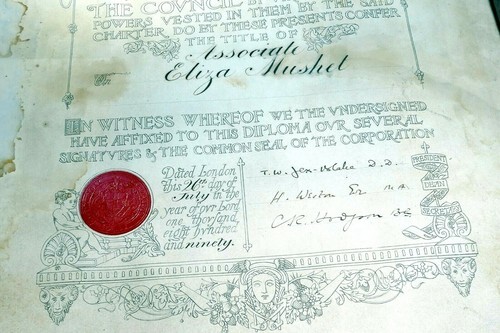 THE COUNCIL BY
POWERS VESTED IN THEM BY THE SAID
CHARTER, DO BY THESE PRESENTS CONFER
THE TITLE OF
Associate
Eliza Mushel
IN WITNESS WHEREOF WE THE VNDERSIGNED
HAVE AFFIXED TO THIS DIPLOMA OVR SEVERAL
SIGNATVRES & THE COMMON SEAL OF THE CORPORATION
Dated London
this 26th day of
July in the
year of ovr Lord
one thovsand,
eight hvndred
and ninety.
T. W. Jex-Blake D.D.
H. Weston Eve M.A.
C. E. Hodgson BA
PRESIDENT
DEAN
SECRETARY